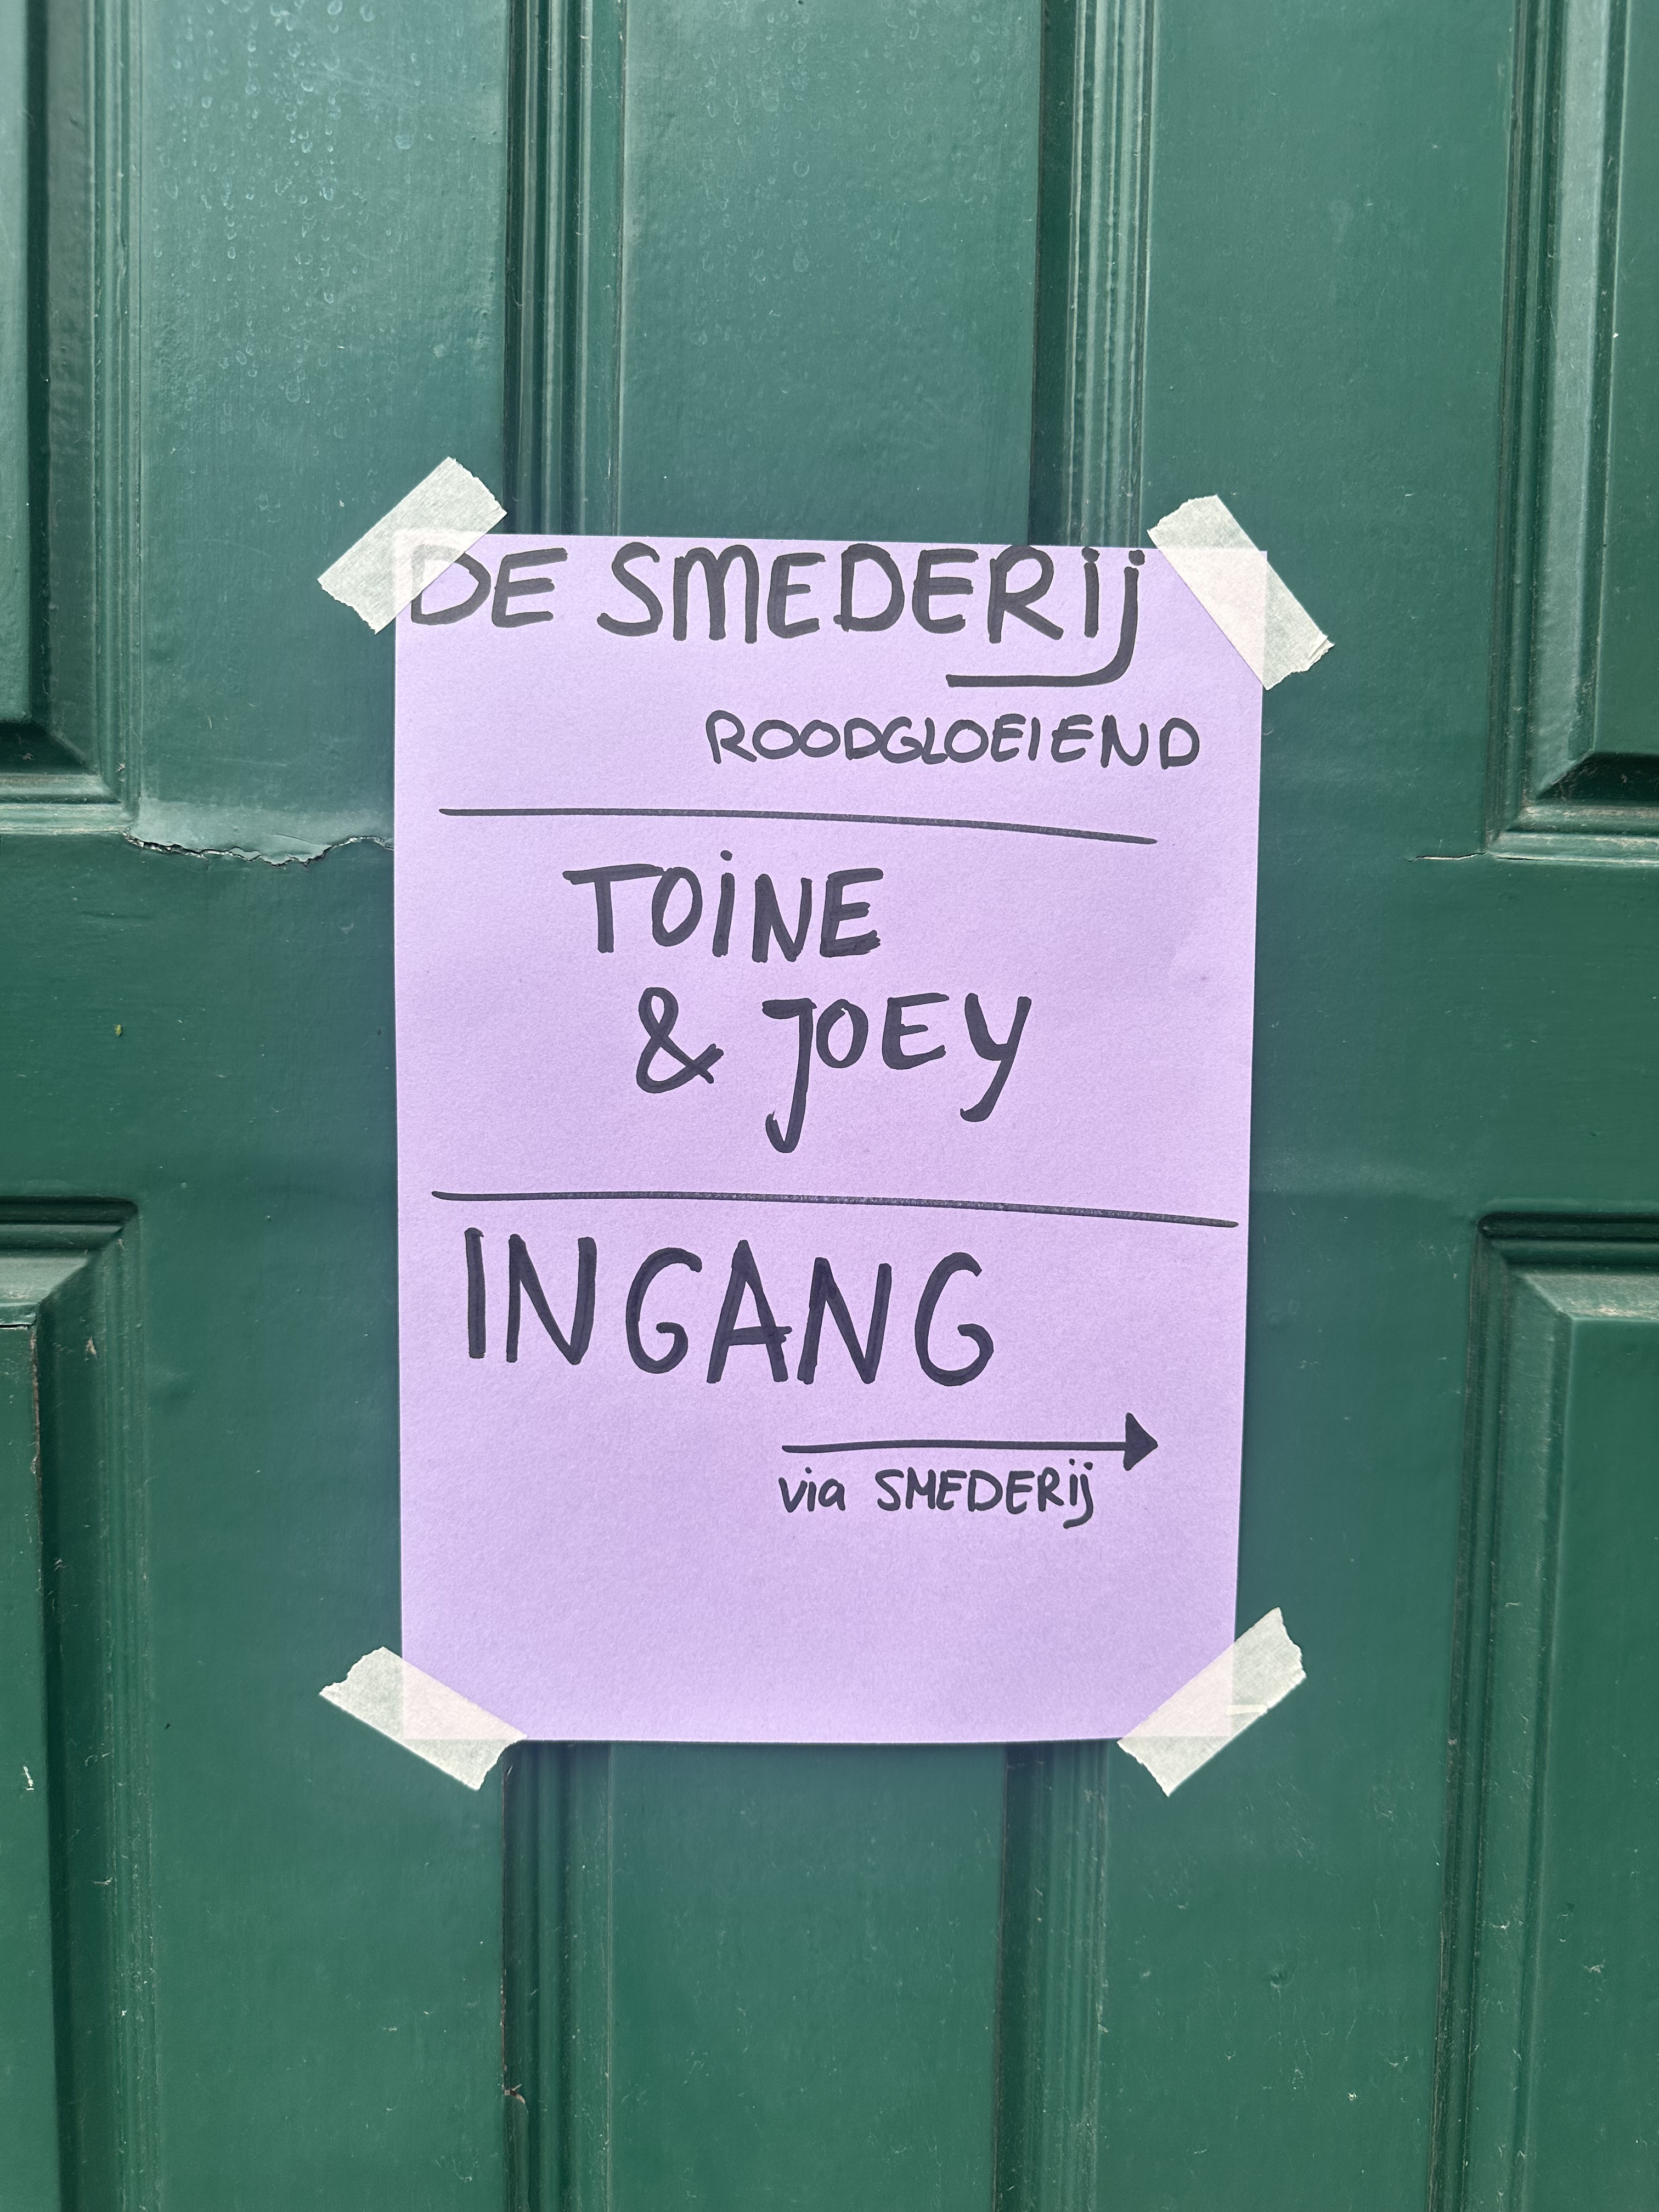 DE SMEDERij
ROODGLOEIEND
TOiNE
& JOEY
INGANG
via SMEDERij